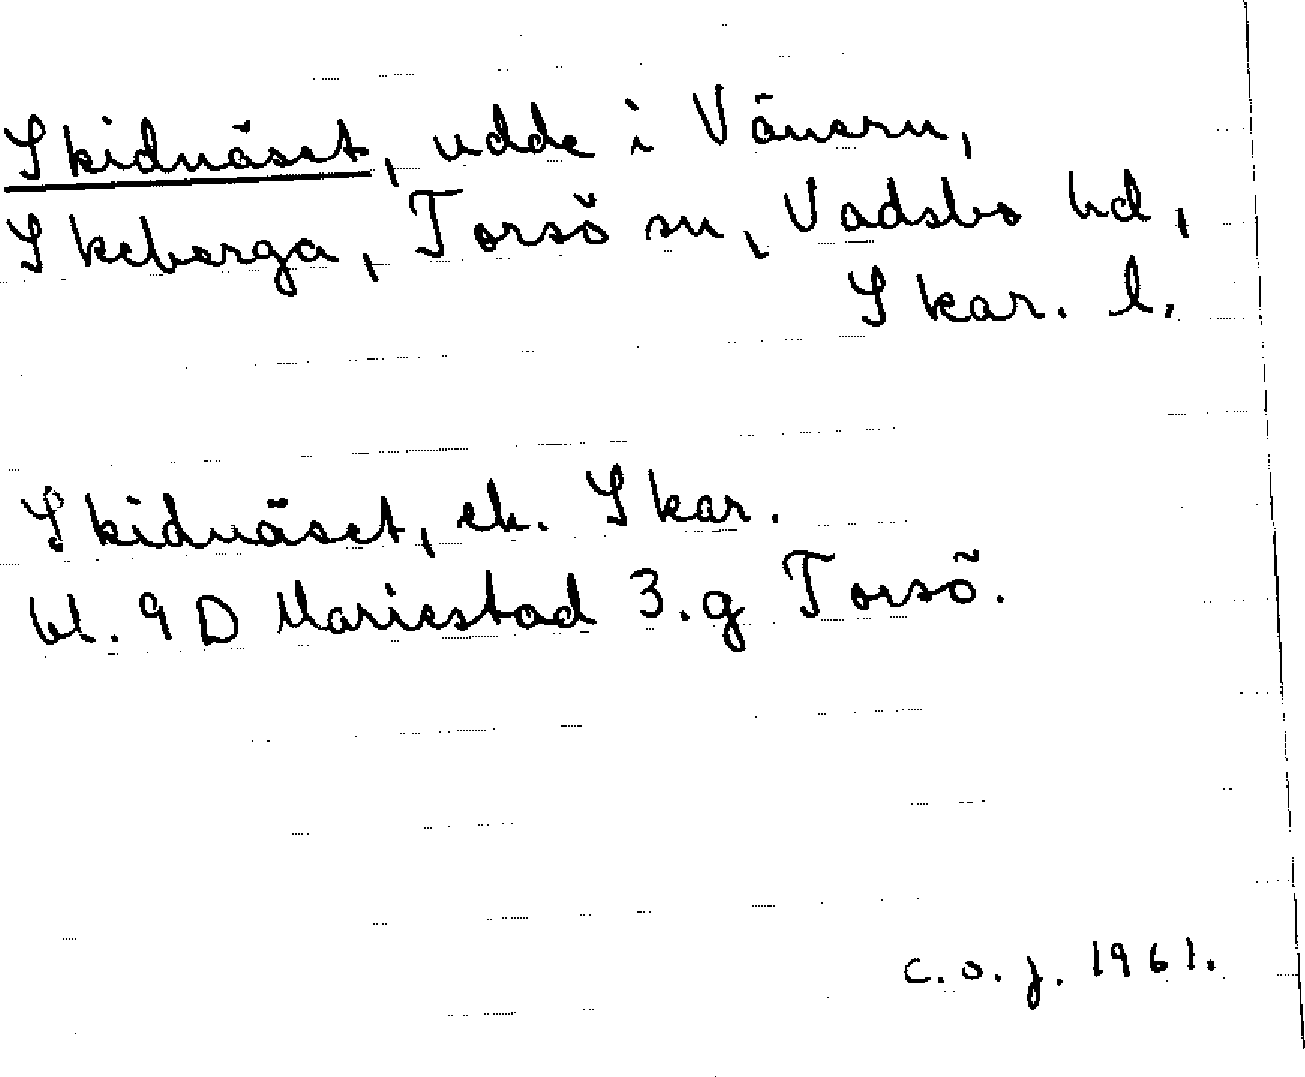 Skidnäset, udde i Vänern,
Skeberga, Torsö sn, Vadsbo hd,
Skar. l.
Skidnäset, ek. Skar.
bl. 9 D Mariestad 3.g Torsö.
c.o.j. 1961.